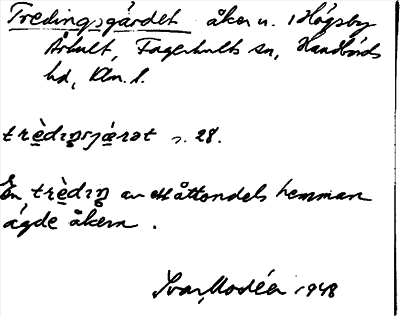 Tredingsgärdet åker n. i Högsby
Århult, Fagerhults sn, Handbörds
hd, Klm. l.
trèdıŋsjæ̀rət s. 28.
En trèdıŋ av ett åttondels hemman
ägde åkern .
Ivar Modéer 1948